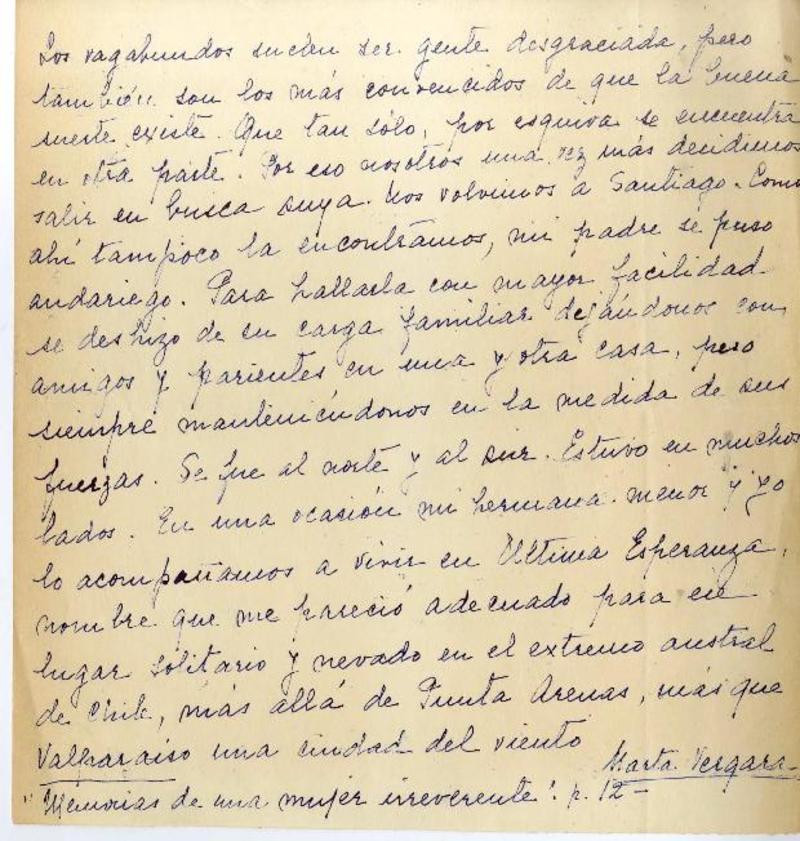 Los vagabundos suelen ser gente desgraciada, pero
también son los más convencidos de que la buena
suerte existe. Que tan sólo, por esquiva se encuentra
en otra parte. Por eso nosotros una vez más decidimos
salir en busca suya. Nos volvimos a Santiago. Como
ahí tampoco la encontramos, mi padre se puso
andariego. Para hallarla con mayor facilidad
se deshizo de su carga familiar dejándonos con
amigos y parientes en una y otra casa, pero
siempre manteniéndonos en la medida de sus
fuerzas. Se fue al norte y al sur. Estuvo en muchos
lados. En una ocasión mi hermana menor y yo
lo acompañamos a vivir en Ultima Esperanza,
nombre que me pareció adecuado para ese
lugar solitario y nevado en el extremo austral
de Chile, más allá de Punta Arenas, más que
Valparaíso una ciudad del viento
Marta Vergara-
"Memorias de una mujer irreverente". p. 12-